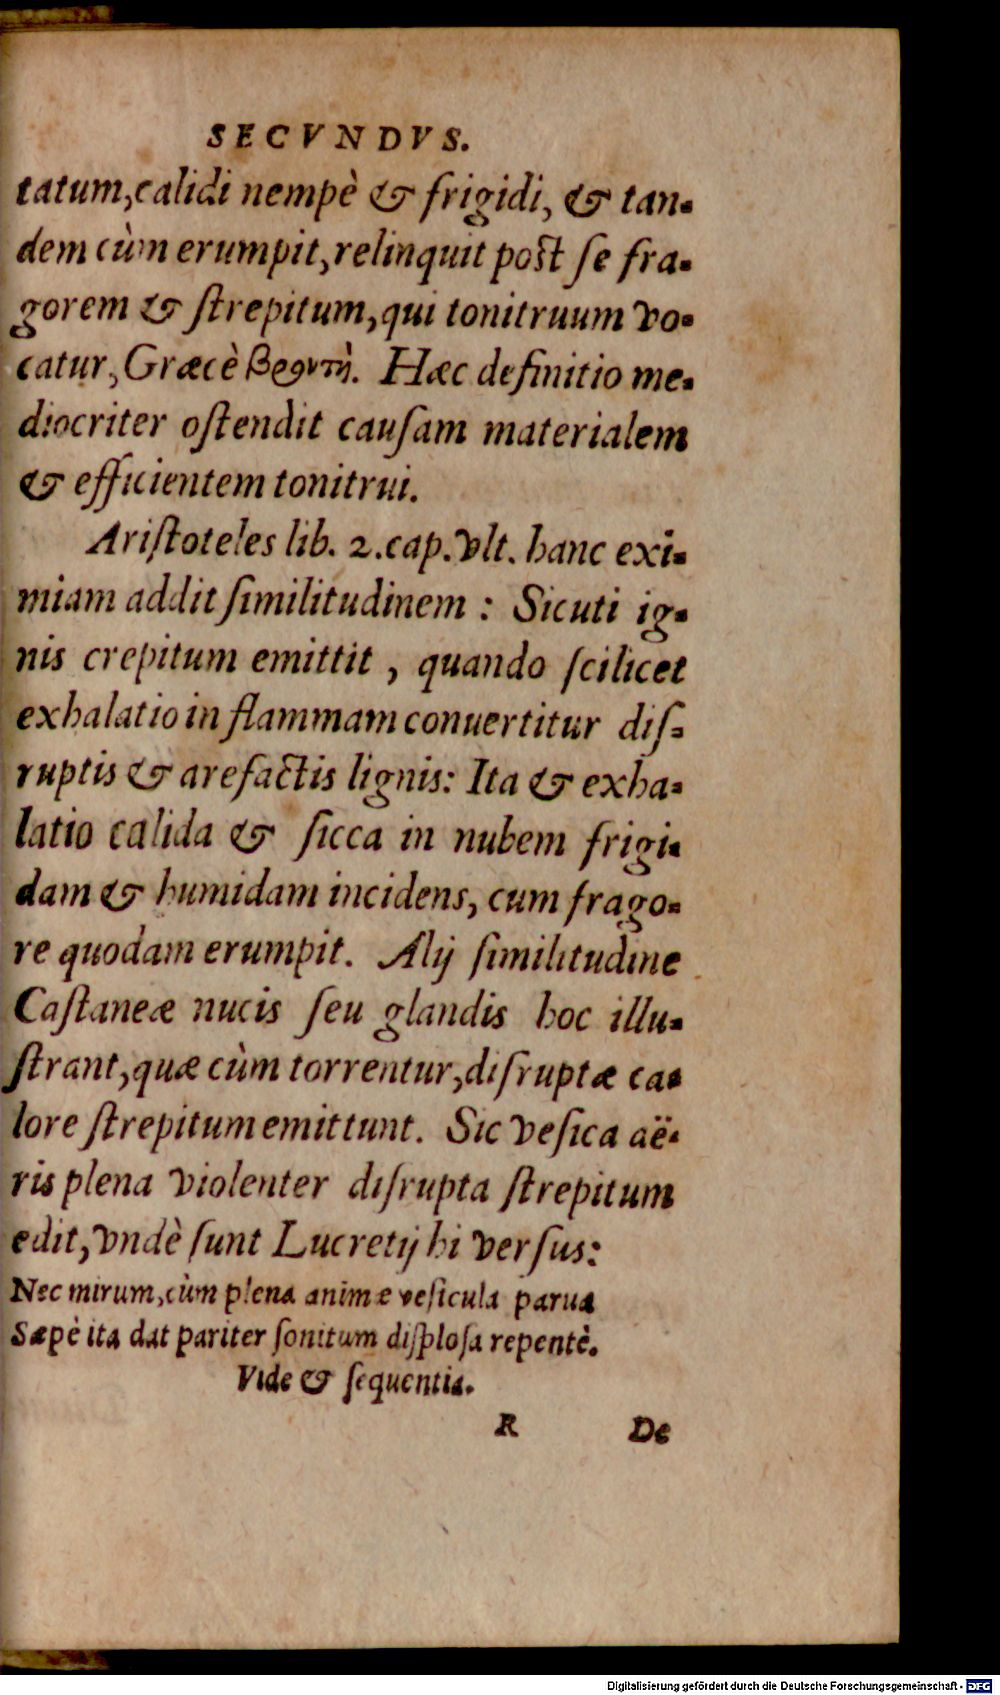 SECVNDVS.
tatum, calidi nempè & frigidi, & tan-
dem cùm erumpit, relinquit post ſe fra-
gorem & ſtrepitum, qui tonitruum vo-
catur, Græcè βροντὴ. Hæc definitio me-
diocriter oſtendit cauſam materialem
& efficientem tonitrui.
Ariſtoteles lib. 2. cap. vlt. hanc exi-
miam addit ſimilitudinem : Sicuti ig-
nis crepitum emittit , quando ſcilicet
exhalatio in flammam conuertitur diſ-
ruptis & arefactis lignis: Ita & exha-
latio calida & ſicca in nubem frigi-
dam & humidam incidens, cum frago-
re quodam erumpit. Alij ſimilitudine
Caſtaneæ nucis ſeu glandis hoc illu-
ſtrant, quæ cùm torrentur, diſruptæ ca-
lore ſtrepitum emittunt. Sic veſica aë-
ris plena violenter diſrupta ſtrepitum
edit, vndè ſunt Lucretij hi verſus:
Nec mirum, cùm plena animæ veſicula parua
Sæpè ita dat pariter ſonitum diſploſa repentè.
Vide & ſequentia.
R De
Digitalisierung gefördert durch die Deutsche Forschungsgemeinschaft - DFG